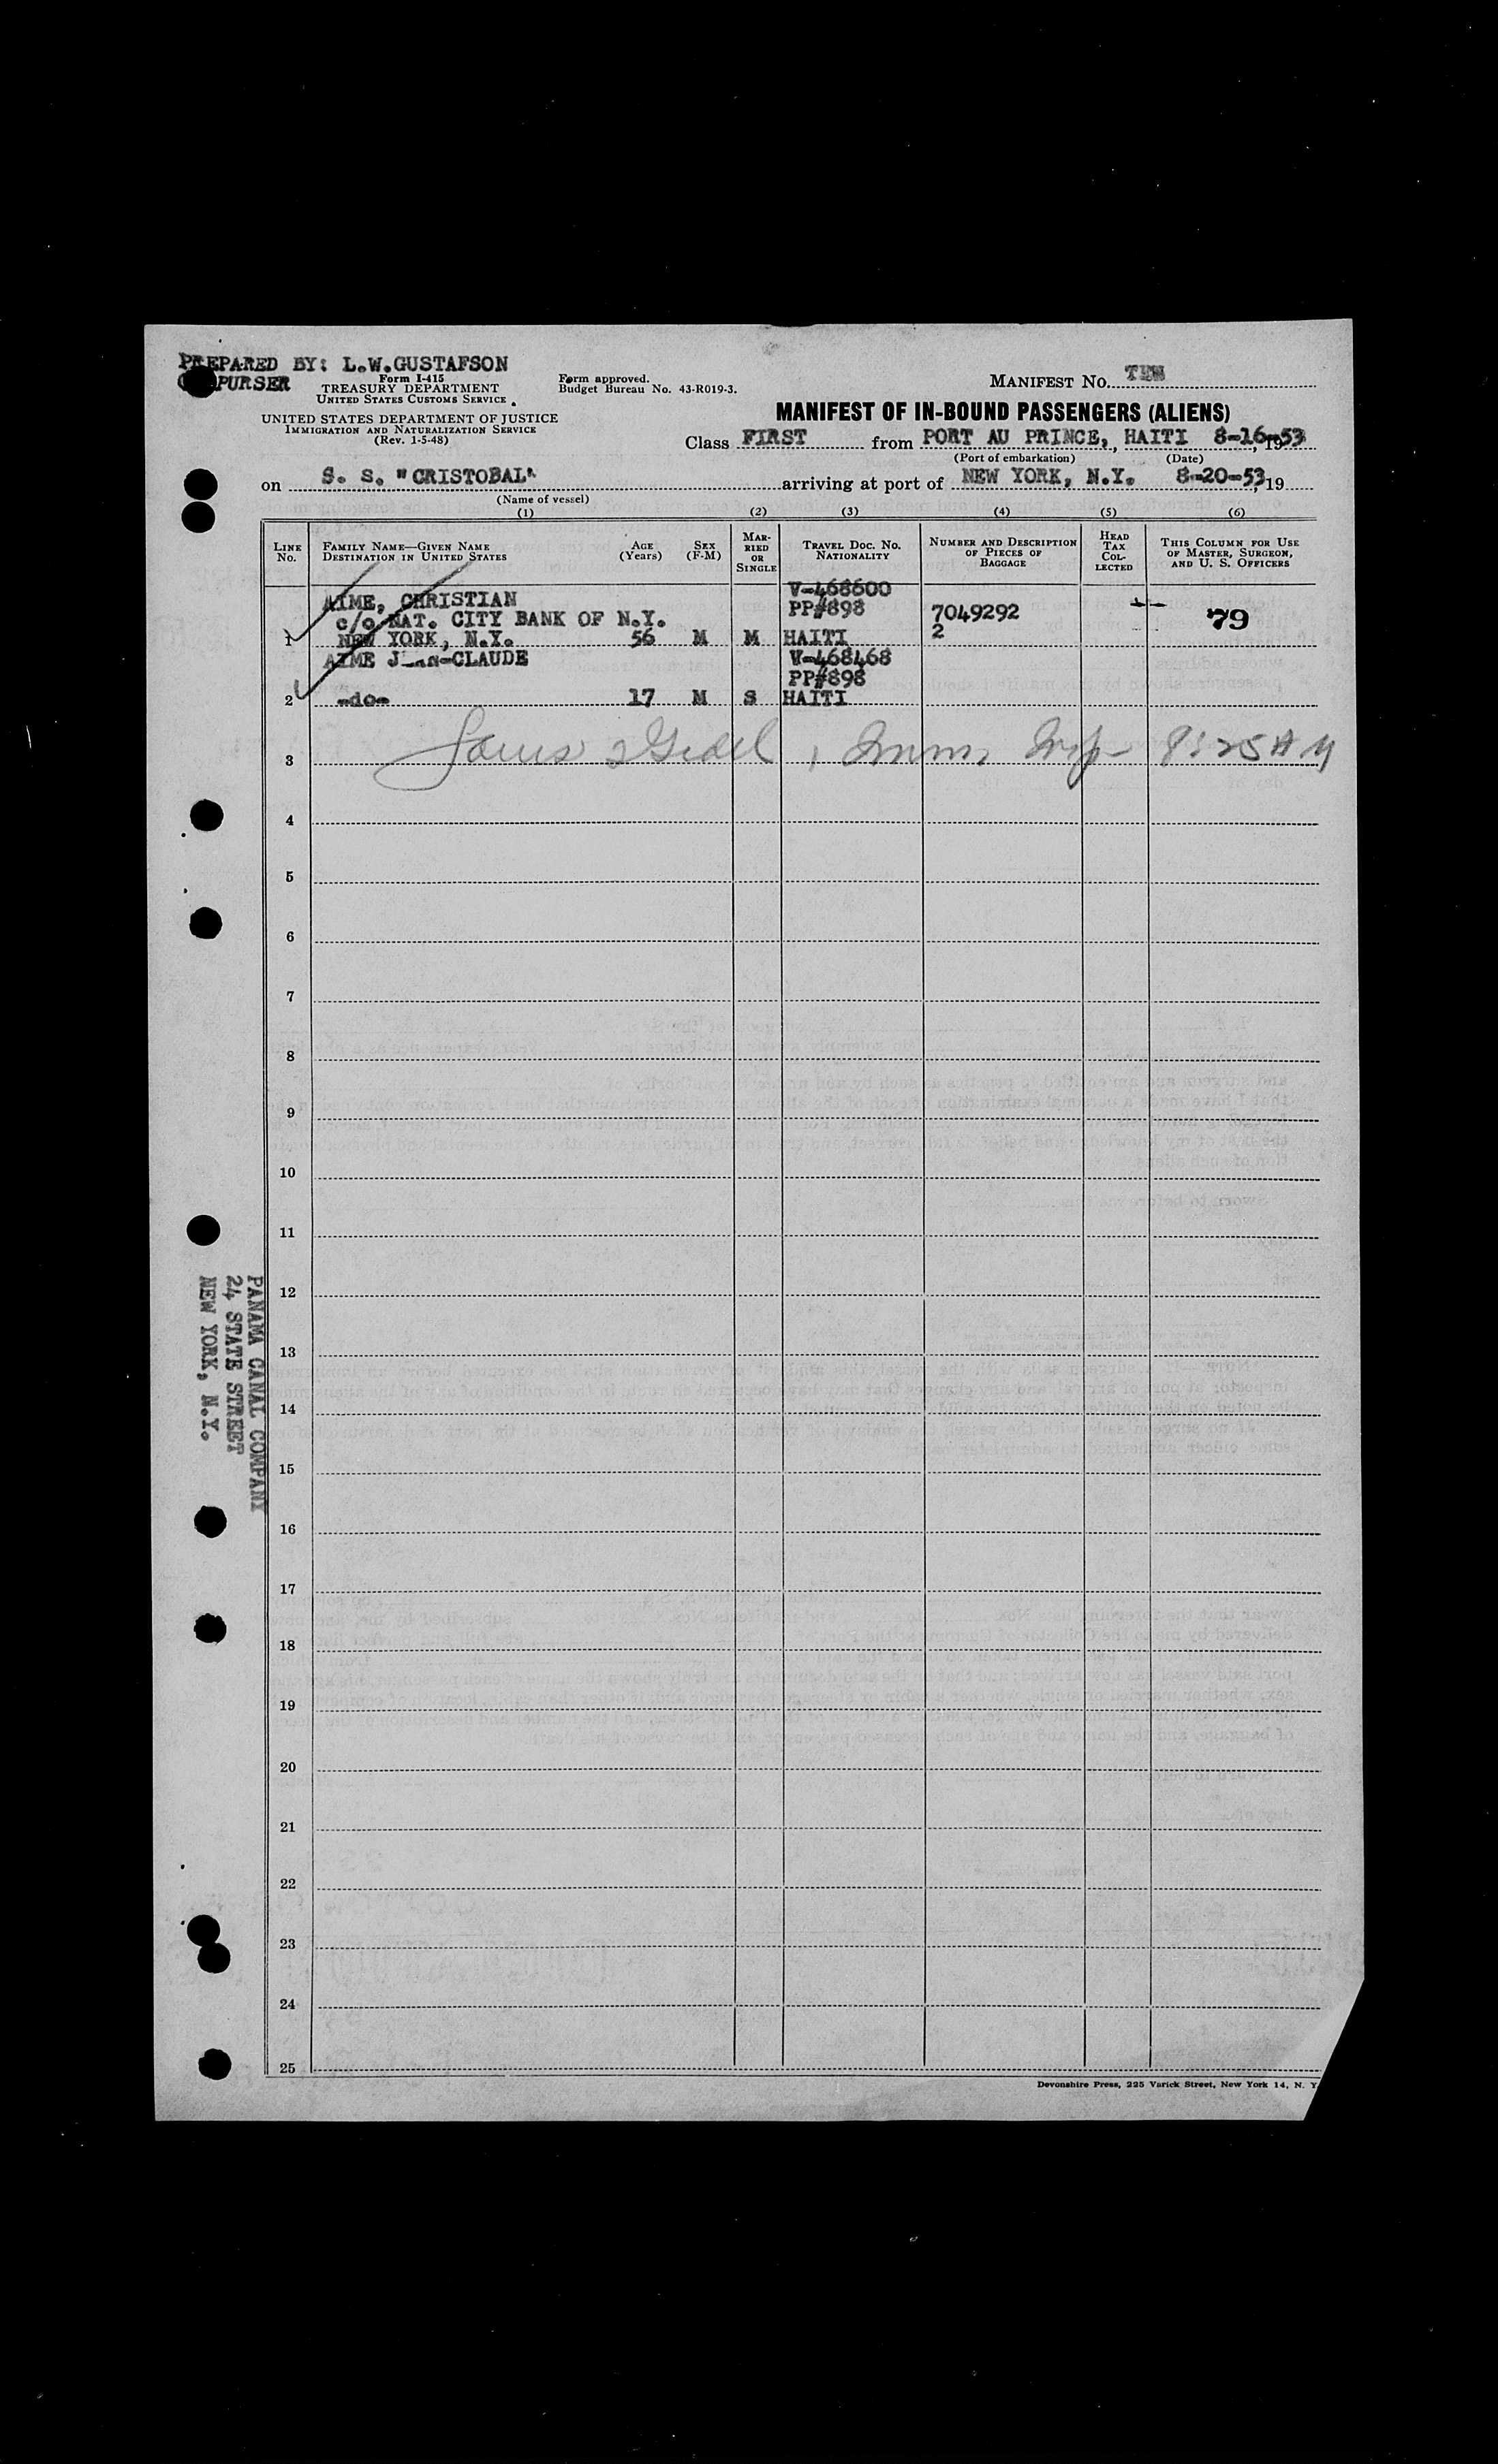 PREPARED BY: L.W.GUSTAFSON
PURSER
Form I-415
TREASURY DEPARTMENT
UNITED STATES CUSTOMS SERVICE
Form approved.
Budget Bureau No. 43-R019-3.
MANIFEST No.
UNITED STATES DEPARTMENT OF JUSTICE
IMMIGRATION AND NATURALIZATION SERVICE
(Rev. 1-5-48)
MANIFEST OF IN-BOUND PASSENGERS (ALIENS)
Class FIRST from PORT AU PRINCE, HAITI 8-16-53, 19
(Port of embarkation) (Date)
on S. S. "CRISTOBAL" arriving at port of NEW YORK, N.Y. 8-20-53, 19
(Name of vessel)
(1) (2) (3) (4) (5) (6)
LINE No. FAMILY NAME—GIVEN NAME DESTINATION IN UNITED STATES AGE (Years) SEX (F-M) MARRIED OR SINGLE TRAVEL DOC. NO. NATIONALITY NUMBER AND DESCRIPTION OF PIECES OF BAGGAGE HEAD TAX COLLECTED THIS COLUMN FOR USE OF MASTER, SURGEON, AND U. S. OFFICERS
V-468600
AIME, CHRISTIAN PP#898 7049292 79
c/o NAT. CITY BANK OF N.Y.
1 NEW YORK, N.Y. 56 M M HAITI 2
AIME JEAN-CLAUDE V-468468
PP#898
2 -do- 17 M S HAITI
3 Imm. Insp- 8:25 AM
4
5
6
7
8
9
10
11
12
13
14
15
16
17
18
19
20
21
22
23
24
25
PANAMA CANAL COMPANY
24 STATE STREET
NEW YORK, N.Y.
Devonshire Press, 225 Varick Street, New York 14, N. Y